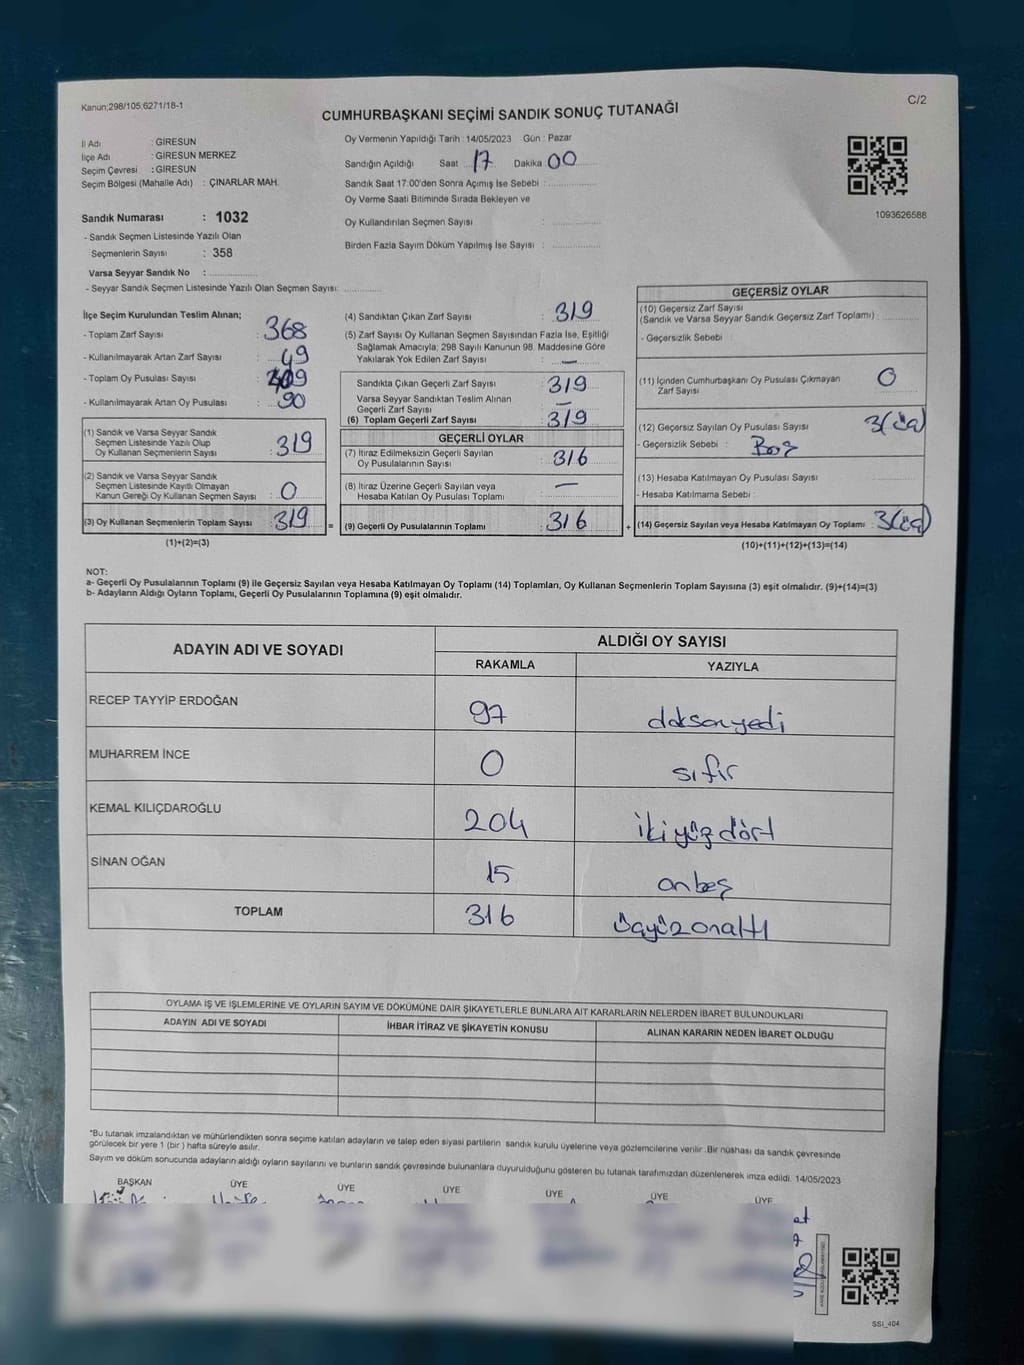 Kanun;298/105;6271/18-1
C/2
CUMHURBAŞKANI SEÇİMİ SANDIK SONUÇ TUTANAĞI
İl Adı : GİRESUN
İlçe Adı : GİRESUN MERKEZ
Seçim Çevresi : GİRESUN
Seçim Bölgesi (Mahalle Adı) : ÇINARLAR MAH.
Sandık Numarası : 1032
- Sandık Seçmen Listesinde Yazılı Olan
Seçmenlerin Sayısı : 358
Varsa Seyyar Sandık No :
- Seyyar Sandık Seçmen Listesinde Yazılı Olan Seçmen Sayısı:
Oy Vermenin Yapıldığı Tarih : 14/05/2023 Gün : Pazar
Sandığın Açıldığı Saat 17 Dakika 00
Sandık Saat 17:00'den Sonra Açımış İse Sebebi :
Oy Verme Saati Bitiminde Sırada Bekleyen ve
Oy Kullandırılan Seçmen Sayısı :
Birden Fazla Sayım Döküm Yapılmış İse Sayısı :
1093626588
İlçe Seçim Kurulundan Teslim Alınan;
- Toplam Zarf Sayısı : 368
- Kullanılmayarak Artan Zarf Sayısı : 49
- Toplam Oy Pusulası Sayısı : 409
- Kullanılmayarak Artan Oy Pusulası : 90
(1) Sandık ve Varsa Seyyar Sandık
Seçmen Listesinde Yazılı Olup
Oy Kullanan Seçmenlerin Sayısı : 319
(2) Sandık ve Varsa Seyyar Sandık
Seçmen Listesinde Kayıtlı Olmayan
Kanun Gereği Oy Kullanan Seçmen Sayısı : 0
(3) Oy Kullanan Seçmenlerin Toplam Sayısı : 319 =
(1)+(2)=(3)
(4) Sandıktan Çıkan Zarf Sayısı : 319
(5) Zarf Sayısı Oy Kullanan Seçmen Sayısından Fazla İse, Eşitliği
Sağlamak Amacıyla; 298 Sayılı Kanunun 98. Maddesine Göre
Yakılarak Yok Edilen Zarf Sayısı : —
Sandıkta Çıkan Geçerli Zarf Sayısı : 319
Varsa Seyyar Sandıktan Teslim Alınan
Geçerli Zarf Sayısı : —
(6) Toplam Geçerli Zarf Sayısı : 319
GEÇERLİ OYLAR
(7) İtiraz Edilmeksizin Geçerli Sayılan
Oy Pusulalarının Sayısı : 316
(8) İtiraz Üzerine Geçerli Sayılan veya
Hesaba Katılan Oy Pusulası Toplamı : —
(9) Geçerli Oy Pusulalarının Toplamı : 316 +
GEÇERSİZ OYLAR
(10) Geçersiz Zarf Sayısı
(Sandık ve Varsa Seyyar Sandık Geçersiz Zarf Toplamı) :
- Geçersizlik Sebebi :
(11) İçinden Cumhurbaşkanı Oy Pusulası Çıkmayan
Zarf Sayısı : 0
(12) Geçersiz Sayılan Oy Pusulası Sayısı : 3(üç)
- Geçersizlik Sebebi : Boş
(13) Hesaba Katılmayan Oy Pusulası Sayısı :
- Hesaba Katılmama Sebebi :
(14) Geçersiz Sayılan veya Hesaba Katılmayan Oy Toplamı : 3(üç)
(10)+(11)+(12)+(13)=(14)
NOT:
a- Geçerli Oy Pusulalarının Toplamı (9) ile Geçersiz Sayılan veya Hesaba Katılmayan Oy Toplamı (14) Toplamları, Oy Kullanan Seçmenlerin Toplam Sayısına (3) eşit olmalıdır. (9)+(14)=(3)
b- Adayların Aldığı Oyların Toplamı, Geçerli Oy Pusulalarının Toplamına (9) eşit olmalıdır.
ADAYIN ADI VE SOYADI
ALDIĞI OY SAYISI
RAKAMLA YAZIYLA
RECEP TAYYİP ERDOĞAN 97 doksanyedi
MUHARREM İNCE 0 sıfır
KEMAL KILIÇDAROĞLU 204 ikiyüzdört
SİNAN OĞAN 15 onbeş
TOPLAM 316 üçyüzonaltı
OYLAMA İŞ VE İŞLEMLERİNE VE OYLARIN SAYIM VE DÖKÜMÜNE DAİR ŞİKAYETLERLE BUNLARA AİT KARARLARIN NELERDEN İBARET BULUNDUKLARI
ADAYIN ADI VE SOYADI İHBAR İTİRAZ VE ŞİKAYETİN KONUSU ALINAN KARARIN NEDEN İBARET OLDUĞU
*Bu tutanak imzalandıktan ve mühürlendikten sonra seçime katılan adayların ve talep eden siyasi partilerin sandık kurulu üyelerine veya gözlemcilerine verilir. Bir nüshası da sandık çevresinde
görülecek bir yere 1 (bir) hafta süreyle asılır.
Sayım ve döküm sonucunda adayların aldığı oyların sayılarını ve bunların sandık çevresinde bulunanlara duyurulduğunu gösteren bu tutanak tarafımızdan düzenlenerek imza edildi. 14/05/2023
BAŞKAN ÜYE ÜYE ÜYE ÜYE ÜYE ÜYE
SSI_404